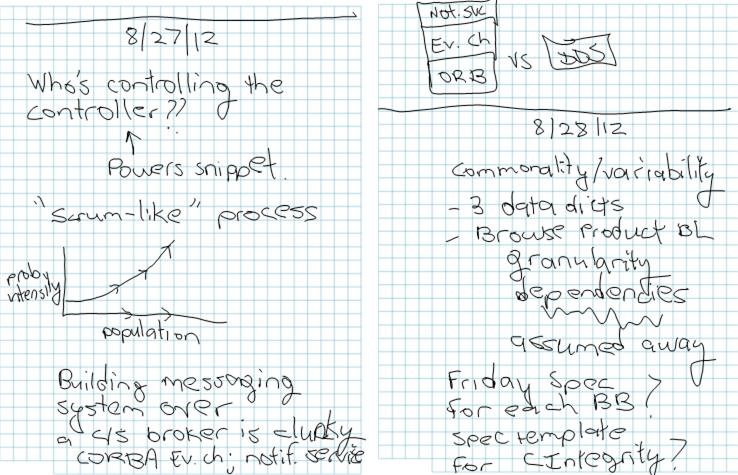 8/27/12
Who's controlling the
controller??
Powers snippet.
"Scrum-like" process
intensity
population
Building messaging
system over
a c/s broker is clunky
CORBA Ev.ch; notif. service
Not.svc
Ev. Ch
ORB
vs
DDS
8/28/12
Commonality/variability
- 3 data dicts
- Browse Product BL
granularity
dependencies
assumed away
Friday Spec
for each BB?
spec template
for CIntegrity?